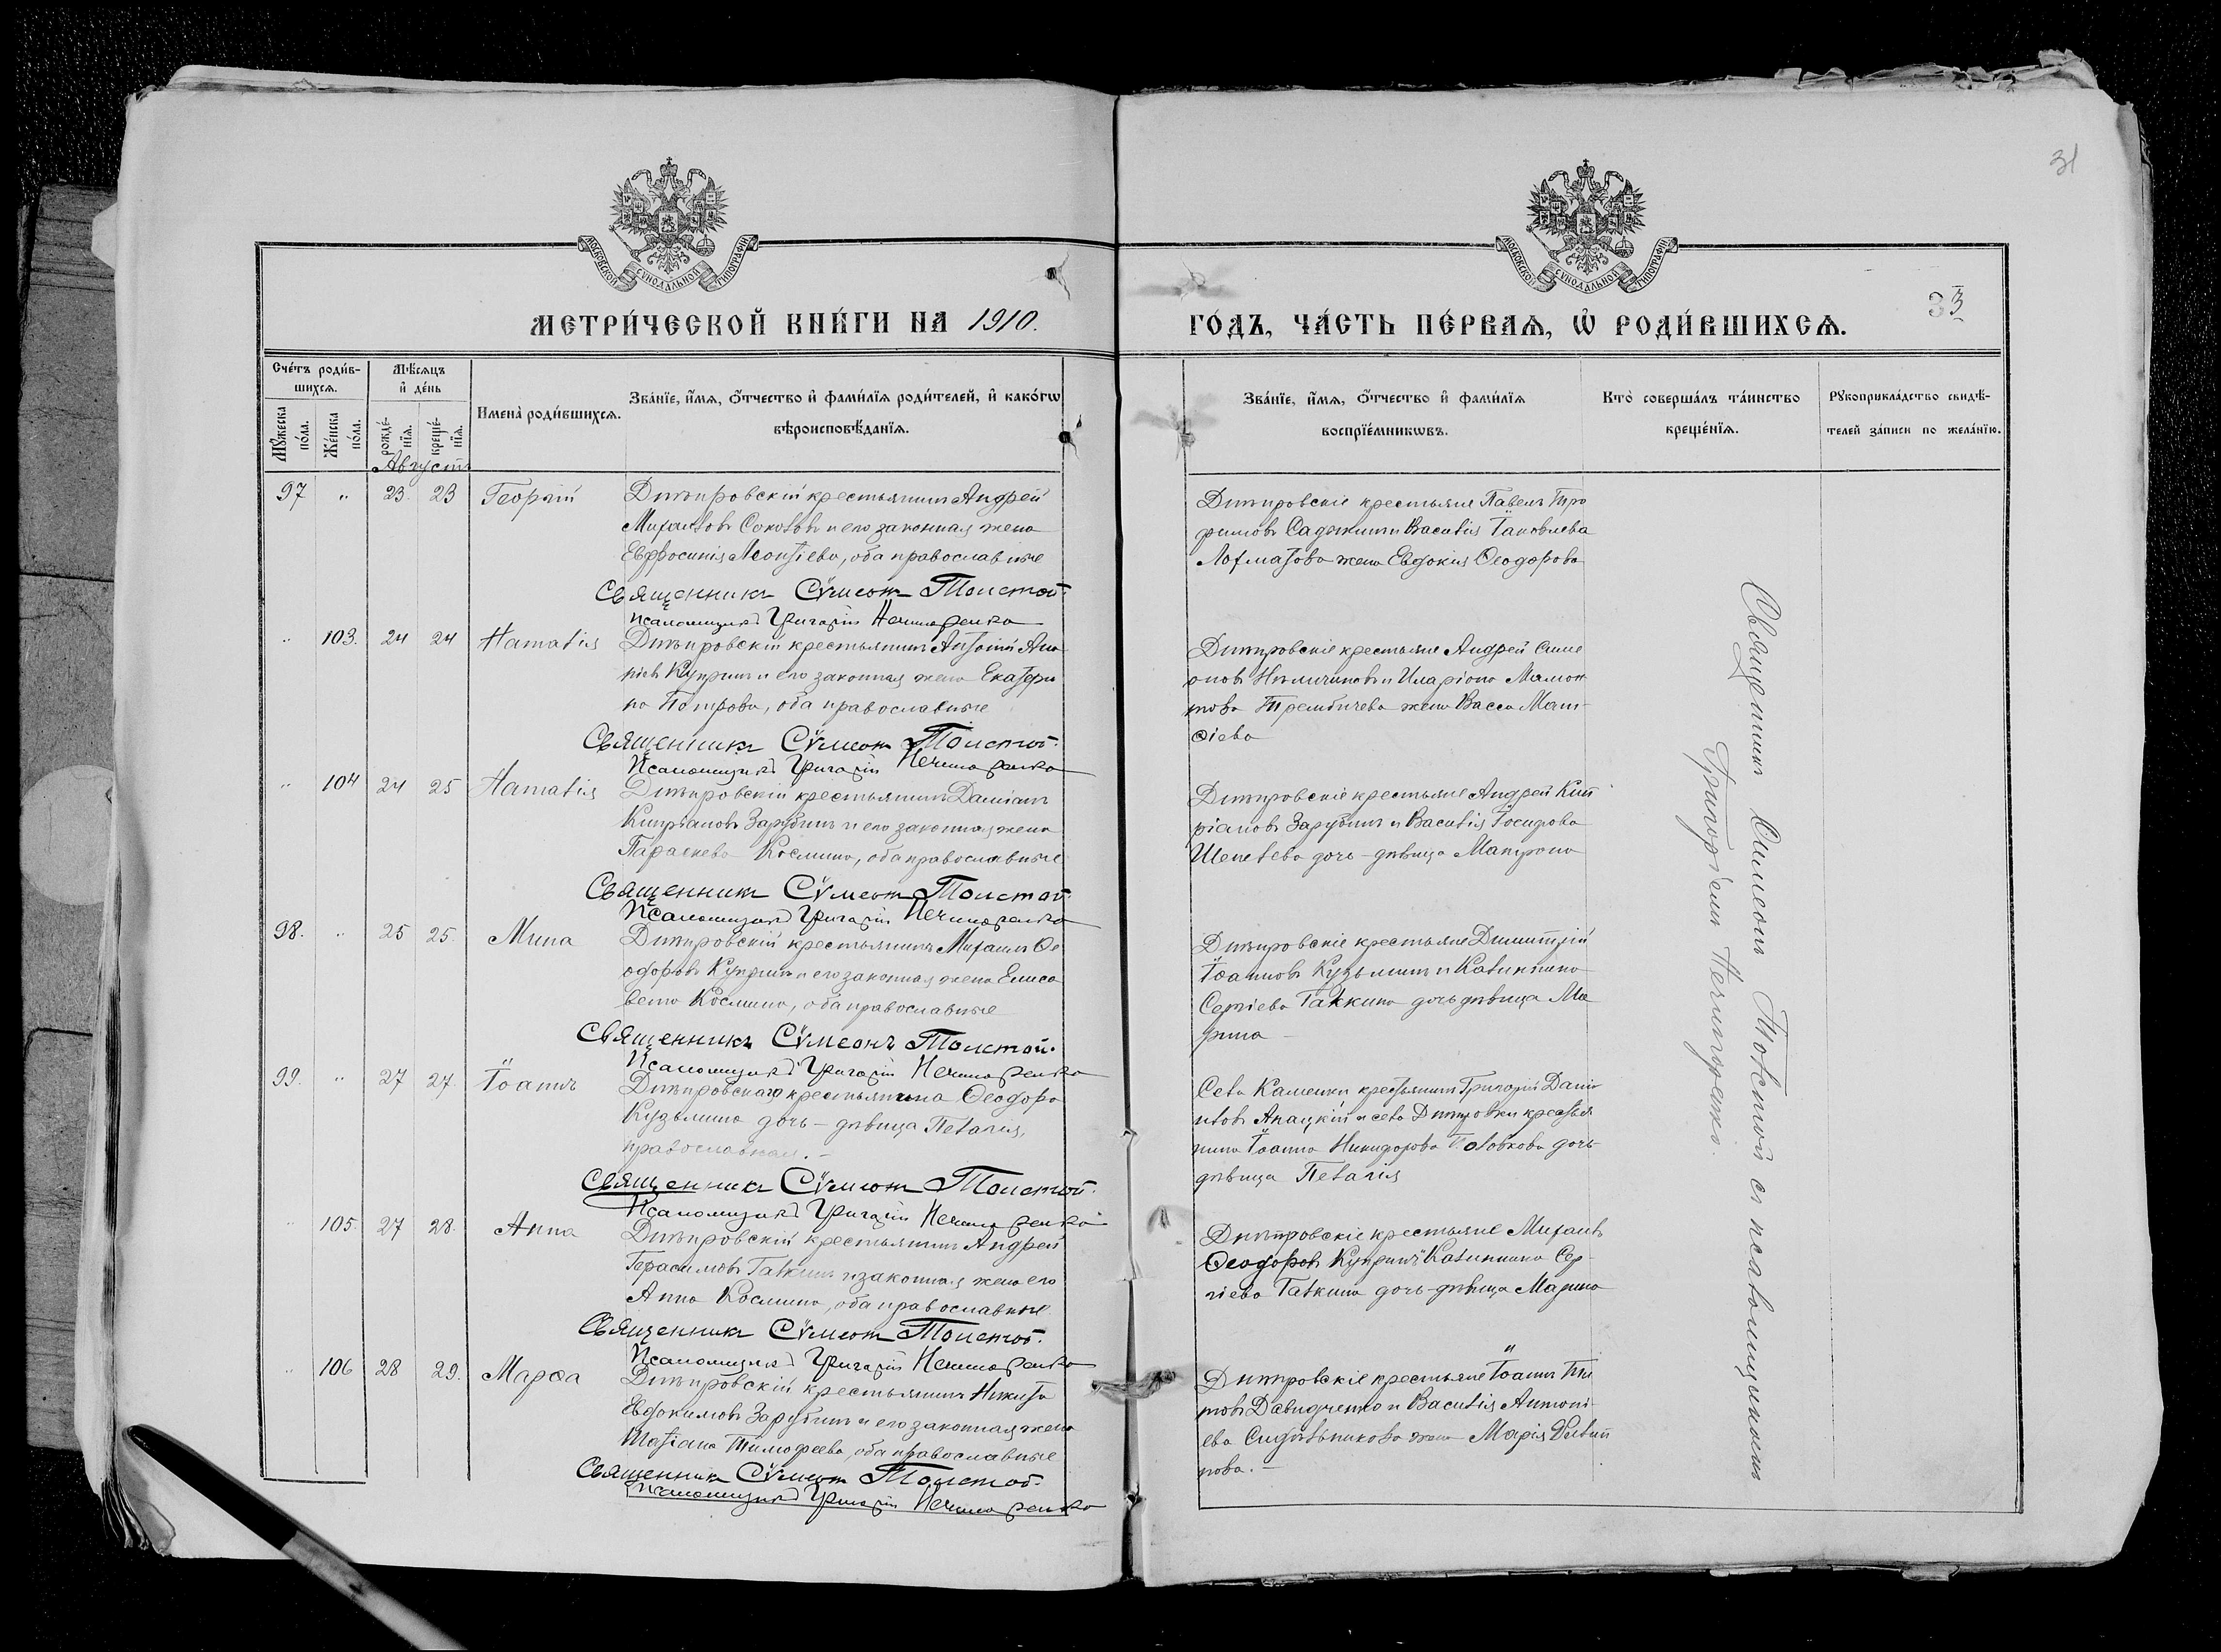 31
МОСКОВСКОЙ СѴНОДАЛЬНОЙ ТИПОГРАФІИ
МОСКОВСКОЙ СѴНОДАЛЬНОЙ ТИПОГРАФІИ
МЕТРИ́ЧЕСКОЙ КНИ́ГИ НА 1910.
ГО́ДЪ, ЧА́СТЬ ПЕ́РВАѦ, Ѡ҆ РОДИ́ВШИХСѦ. 33
Сче́тъ роди́в-
шихсѧ.
Мꙋ́жеска по́ла.
Же́нска по́ла.
Мѣ́сяцъ
и҆ де́нь
рожде́-нїѧ.
креще́-нїѧ.
И҆мена̀ роди́вшихсѧ.
Зва́нїе, и҆́мѧ, ѻ҆́тчество и҆ фами́лїѧ роди́телей, и҆ како́гѡ
вѣроисповѣ́данїѧ.
Зва́нїе, и҆́мѧ, ѻ҆́тчество и҆ фами́лїѧ
воспрїе́мникѡвъ.
Кто̀ соверша́лъ та́инство
креще́нїѧ.
Рꙋкоприкла́дство свидѣ́-
телей за́писи по жела́нїю.
Августъ
97 " 23. 23 Георгій Днѣпровскій крестьянинъ Андрей
Михаиловъ Соколовъ и его законная жена
Евфросинія Леонтіева, оба православные
Священникъ Сѵмеонъ Толстой.
Псаломщикъ Григорій Нечипоренко
Днѣпровскіе крестьяне Павелъ Тро
фимовъ и Василія Іаковлева
Лохматова жена Евдокія Ѳеодорова
" 103. 24 24 Наталія Днѣпровскій крестьянинъ Антоній Ана
ніевъ Купринъ и его законная жена Екатери
на Петрова, оба православные
Священникъ Сѵмеонъ Толстой.
Псаломщикъ Григорій Нечипоренко
Днѣпровскіе крестьяне Андрей Симе
оновъ и Иларіона Мамон
това жена Васса Мат-
ѳіева
" 104 24 25 Наталія Днѣпровскій крестьянинъ Даміанъ
Кипріановъ Зарубинъ и его законная жена
Параскева Космина, оба православные
Священникъ Сѵмеонъ Толстой.
Псаломщикъ Григорій Нечипоренко
Днѣпровскіе крестьяне Андрей Кип
ріановъ Зарубинъ и Василія Іосифова
Шепелева дочь-дѣвица Матрона
98. " 25 25. Мина Днѣпровскій крестьянинъ Михаилъ Ѳе
одоровъ Купринъ и его законная жена Елиса
вета Космина, оба православные
Священникъ Сѵмеонъ Толстой.
Псаломщикъ Григорій Нечипоренко
Днѣпровскіе крестьяне Димитрій
Іоанновъ Кузьминъ и Калинника
Сергіева Галкина дочь дѣвица Ма
рина -
99. " 27 27. Іоаннъ Днѣпровскаго крестьянина Ѳеодора
Кузьмина дочь - дѣвица Пелагія,
православная. -
Священникъ Сѵмеонъ Толстой.
Псаломщикъ Григорій Нечипоренко
Села Каменки крестьянинъ Григорій Дани
иловъ и села Днѣпровки крестья
нина Іоанна Никифорова дочь
дѣвица Пелагія
" 105. 27 28. Анна Днѣпровскій крестьянинъ Андрей
Герасимовъ Галкинъ и законная жена его
Анна Космина, оба православные
Священникъ Сѵмеонъ Толстой.
Псаломщикъ Григорій Нечипоренко
Днѣпровскіе крестьяне Михаилъ
Ѳеодоровъ Купринъ и Калинника Сер-
гіева Галкина дочь-дѣвица Марина
" 106 28 29. Марѳа Днѣпровскій крестьянинъ Никита
Евдокимовъ Зарубинъ и его законная жена
Татіана Тимофеева, оба православные
Священникъ Сѵмеонъ Толстой.
Псаломщикъ Григорій Нечипоренко
Днѣпровскіе крестьяне Іоаннъ Ти
товъ Давидченко и Василія Антоні-
ева Сидѣльникова жена Марія Филип
пова. -
Священникъ Симеонъ Толстой съ псаломщикомъ
Григоріемъ Нечипоренко.